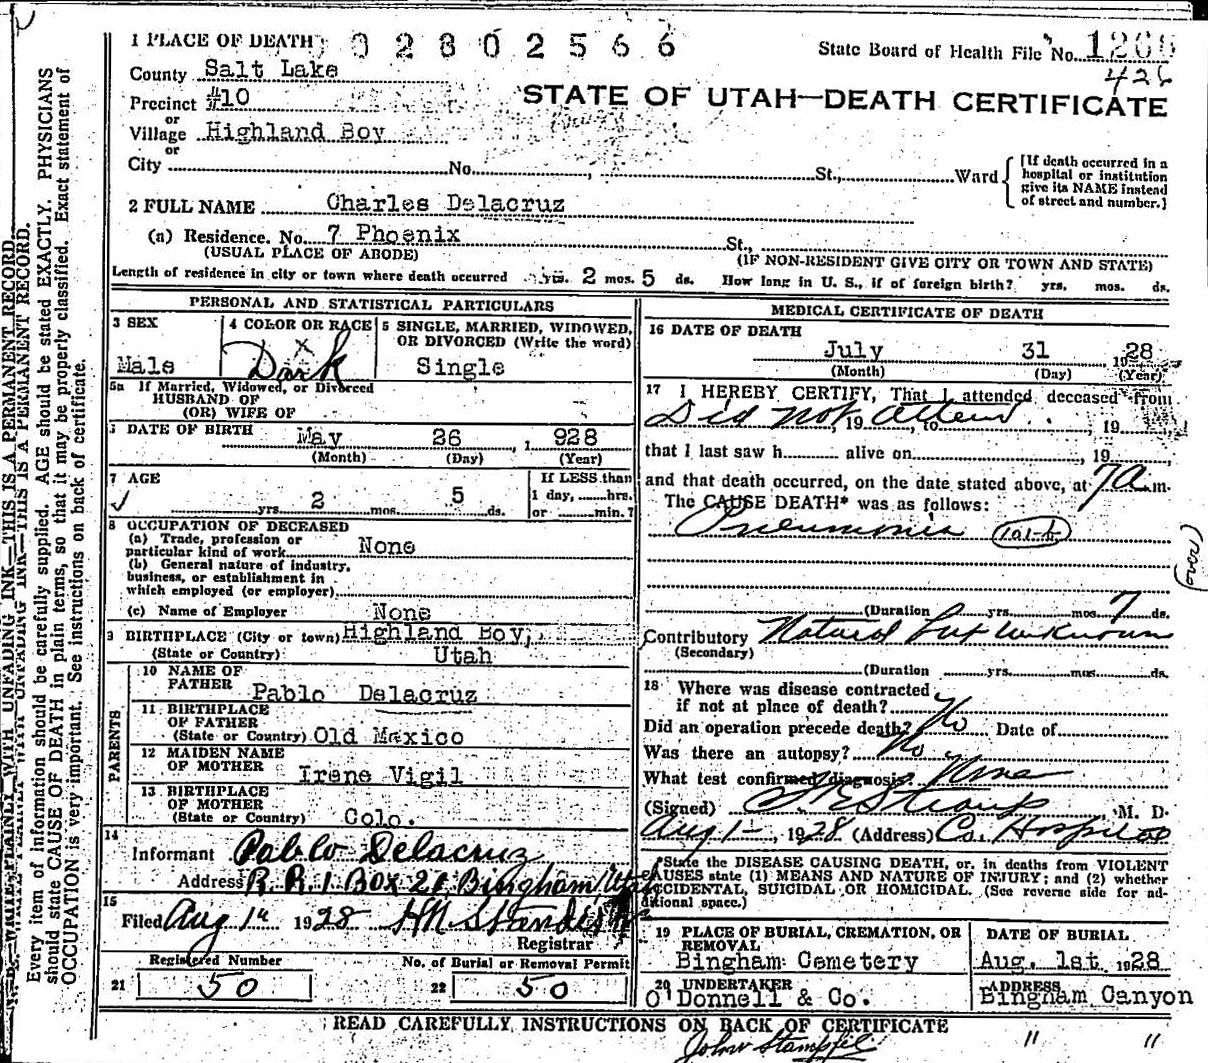 1 PLACE OF DEATH 0 2 8 0 2 5 6 6
State Board of Health File No.
426
County Salt Lake
Precinct #10
or
Village Highland Boy
or
City No. St., Ward
STATE OF UTAH—DEATH CERTIFICATE
[If death occurred in a
hospital or institution
give its NAME instead
of street and number.]
2 FULL NAME Charles Delacruz
(a) Residence. No. 7 Phoenix St.,
(USUAL PLACE OF ABODE) (IF NON-RESIDENT GIVE CITY OR TOWN AND STATE)
Length of residence in city or town where death occurred yrs. 2 mos. 5 ds. How long in U. S., if of foreign birth? yrs. mos. ds.
PERSONAL AND STATISTICAL PARTICULARS
3 SEX
Male
4 COLOR OR RACE
x
Dark
5 SINGLE, MARRIED, WIDOWED,
OR DIVORCED (Write the word)
Single
5a If Married, Widowed, or Divorced
HUSBAND OF
(OR) WIFE OF
DATE OF BIRTH May 26, 1928
(Month) (Day) (Year)
7 AGE
yrs. 2 mos. 5 ds.
If LESS than
1 day, hrs.
or min.?
8 OCCUPATION OF DECEASED
(a) Trade, profession or
particular kind of work None
(b) General nature of industry,
business, or establishment in
which employed (or employer)
(c) Name of Employer None
9 BIRTHPLACE (City or town) Highland Boy,
(State or Country) Utah
PARENTS
10 NAME OF
FATHER Pablo Delacruz
11 BIRTHPLACE
OF FATHER
(State or Country) Old Mexico
12 MAIDEN NAME
OF MOTHER Irene Vigil
13 BIRTHPLACE
OF MOTHER
(State or Country) Colo.
14
Informant Pablo Delacruz
Address R.R.1 Box 21 Bingham, Utah
15
Filed Aug 1st 1928 HN Standish
Registrar
Registered Number
21 50
No. of Burial or Removal Permit
22 50
MEDICAL CERTIFICATE OF DEATH
16 DATE OF DEATH
July 31 1928
(Month) (Day) (Year)
17 I HEREBY CERTIFY, That I attended deceased from
Did not attend, 19 , to , 19
that I last saw h alive on , 19
and that death occurred, on the date stated above, at 7 a m.
The CAUSE DEATH* was as follows:
Pneumonia 101-b
(over)
(Duration yrs. mos. 7 ds.
Contributory Natural but unknown
(Secondary)
(Duration yrs. mos. ds.
18 Where was disease contracted
if not at place of death?
Did an operation precede death? No Date of
Was there an autopsy? No
What test confirmed diagnosis None
(Signed) M. D.
Aug 1 1928 (Address) Co. Hospital
*State the DISEASE CAUSING DEATH, or, in deaths from VIOLENT
CAUSES state (1) MEANS AND NATURE OF INJURY; and (2) whether
ACCIDENTAL, SUICIDAL OR HOMICIDAL. (See reverse side for ad-
ditional space.)
19 PLACE OF BURIAL, CREMATION, OR
REMOVAL
Bingham Cemetery
DATE OF BURIAL
Aug. 1st 1928
20 UNDERTAKER
O'Donnell & Co.
ADDRESS
Bingham Canyon
READ CAREFULLY INSTRUCTIONS ON BACK OF CERTIFICATE
" "
N. B. WRITE PLAINLY WITH UNFADING INK—THIS IS A PERMANENT RECORD.
Every item of information should be carefully supplied. AGE should be stated EXACTLY. PHYSICIANS
should state CAUSE OF DEATH in plain terms, so that it may be properly classified. Exact statement of
OCCUPATION is very important. See instructions on back of certificate.